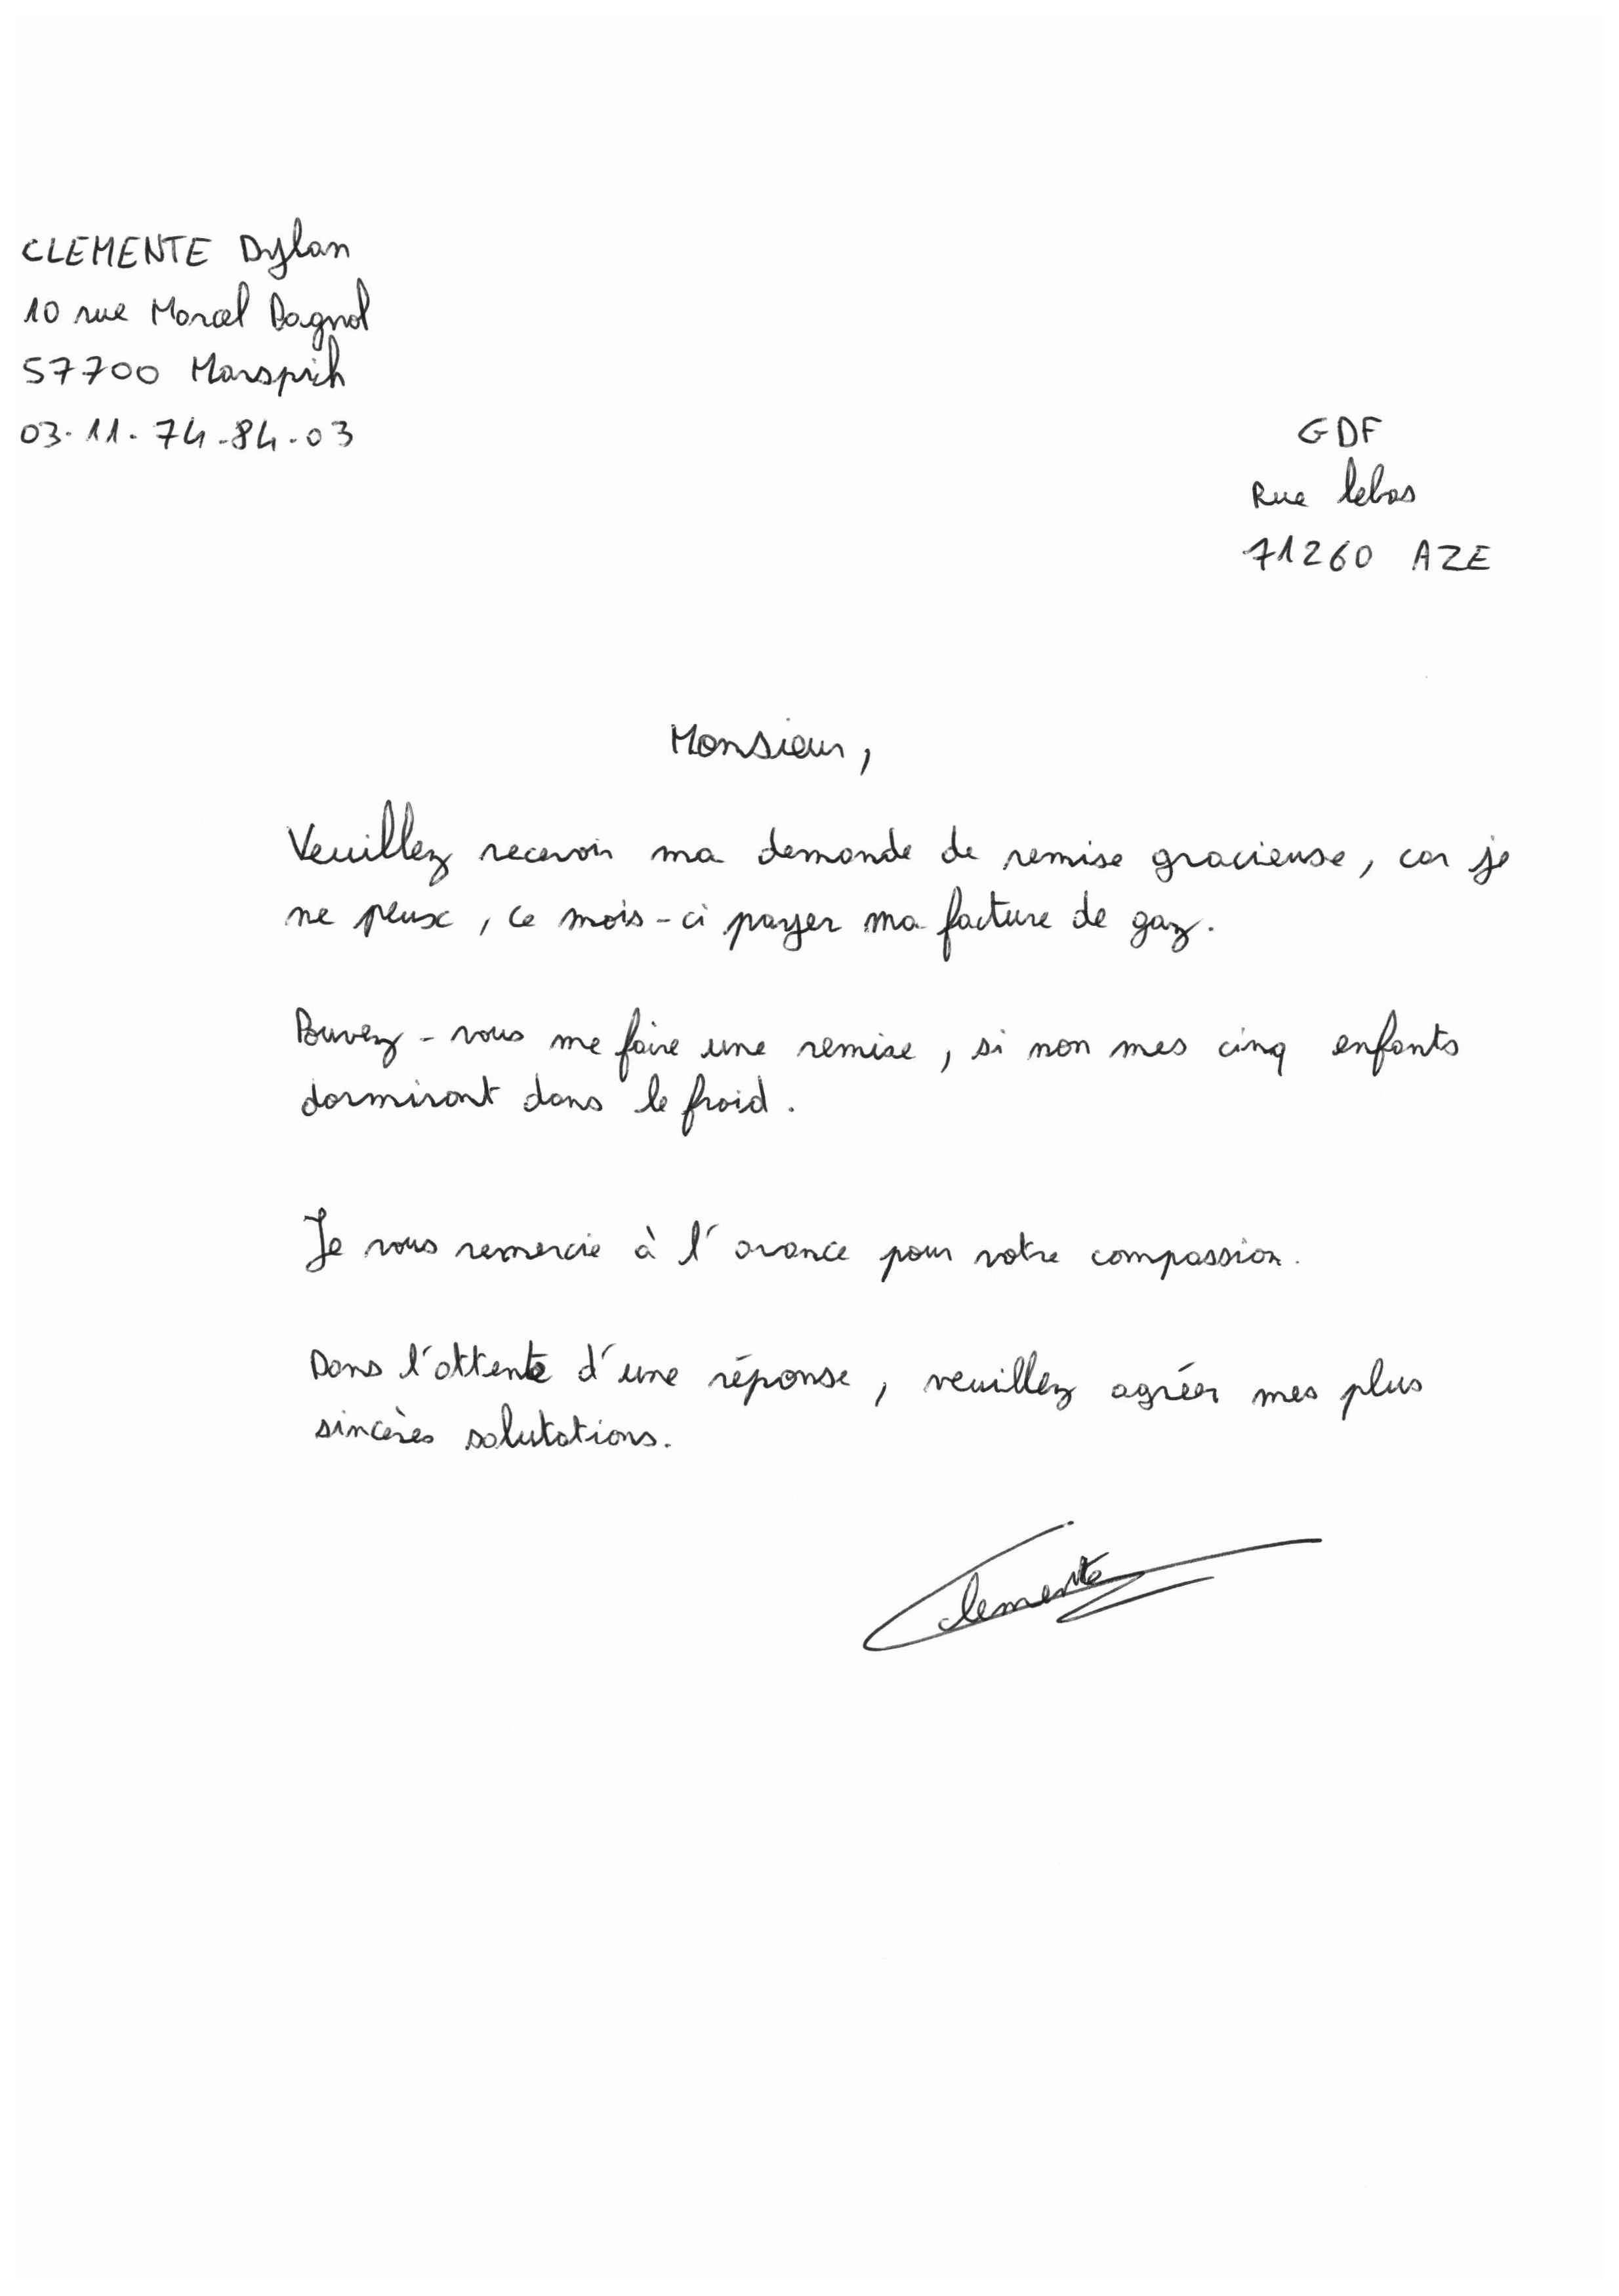 CLEMENTE Dylan
10 rue Marcel Pagnol
57700 Marspich
03.11.74.84.03
GDF
Rue lebas
71260 AZE
Monsieur,
Veuillez recevoir ma demande de remise gracieuse, car je
ne peux, ce mois-ci payer ma facture de gaz.
Pouvez-vous me faire une remise, si non mes cinq enfants
dormiront dans le froid.
Je vous remercie à l'avance pour votre compassion.
Dans l'attente d'une réponse, veuillez agréer mes plus
sincères salutations.
Clemente